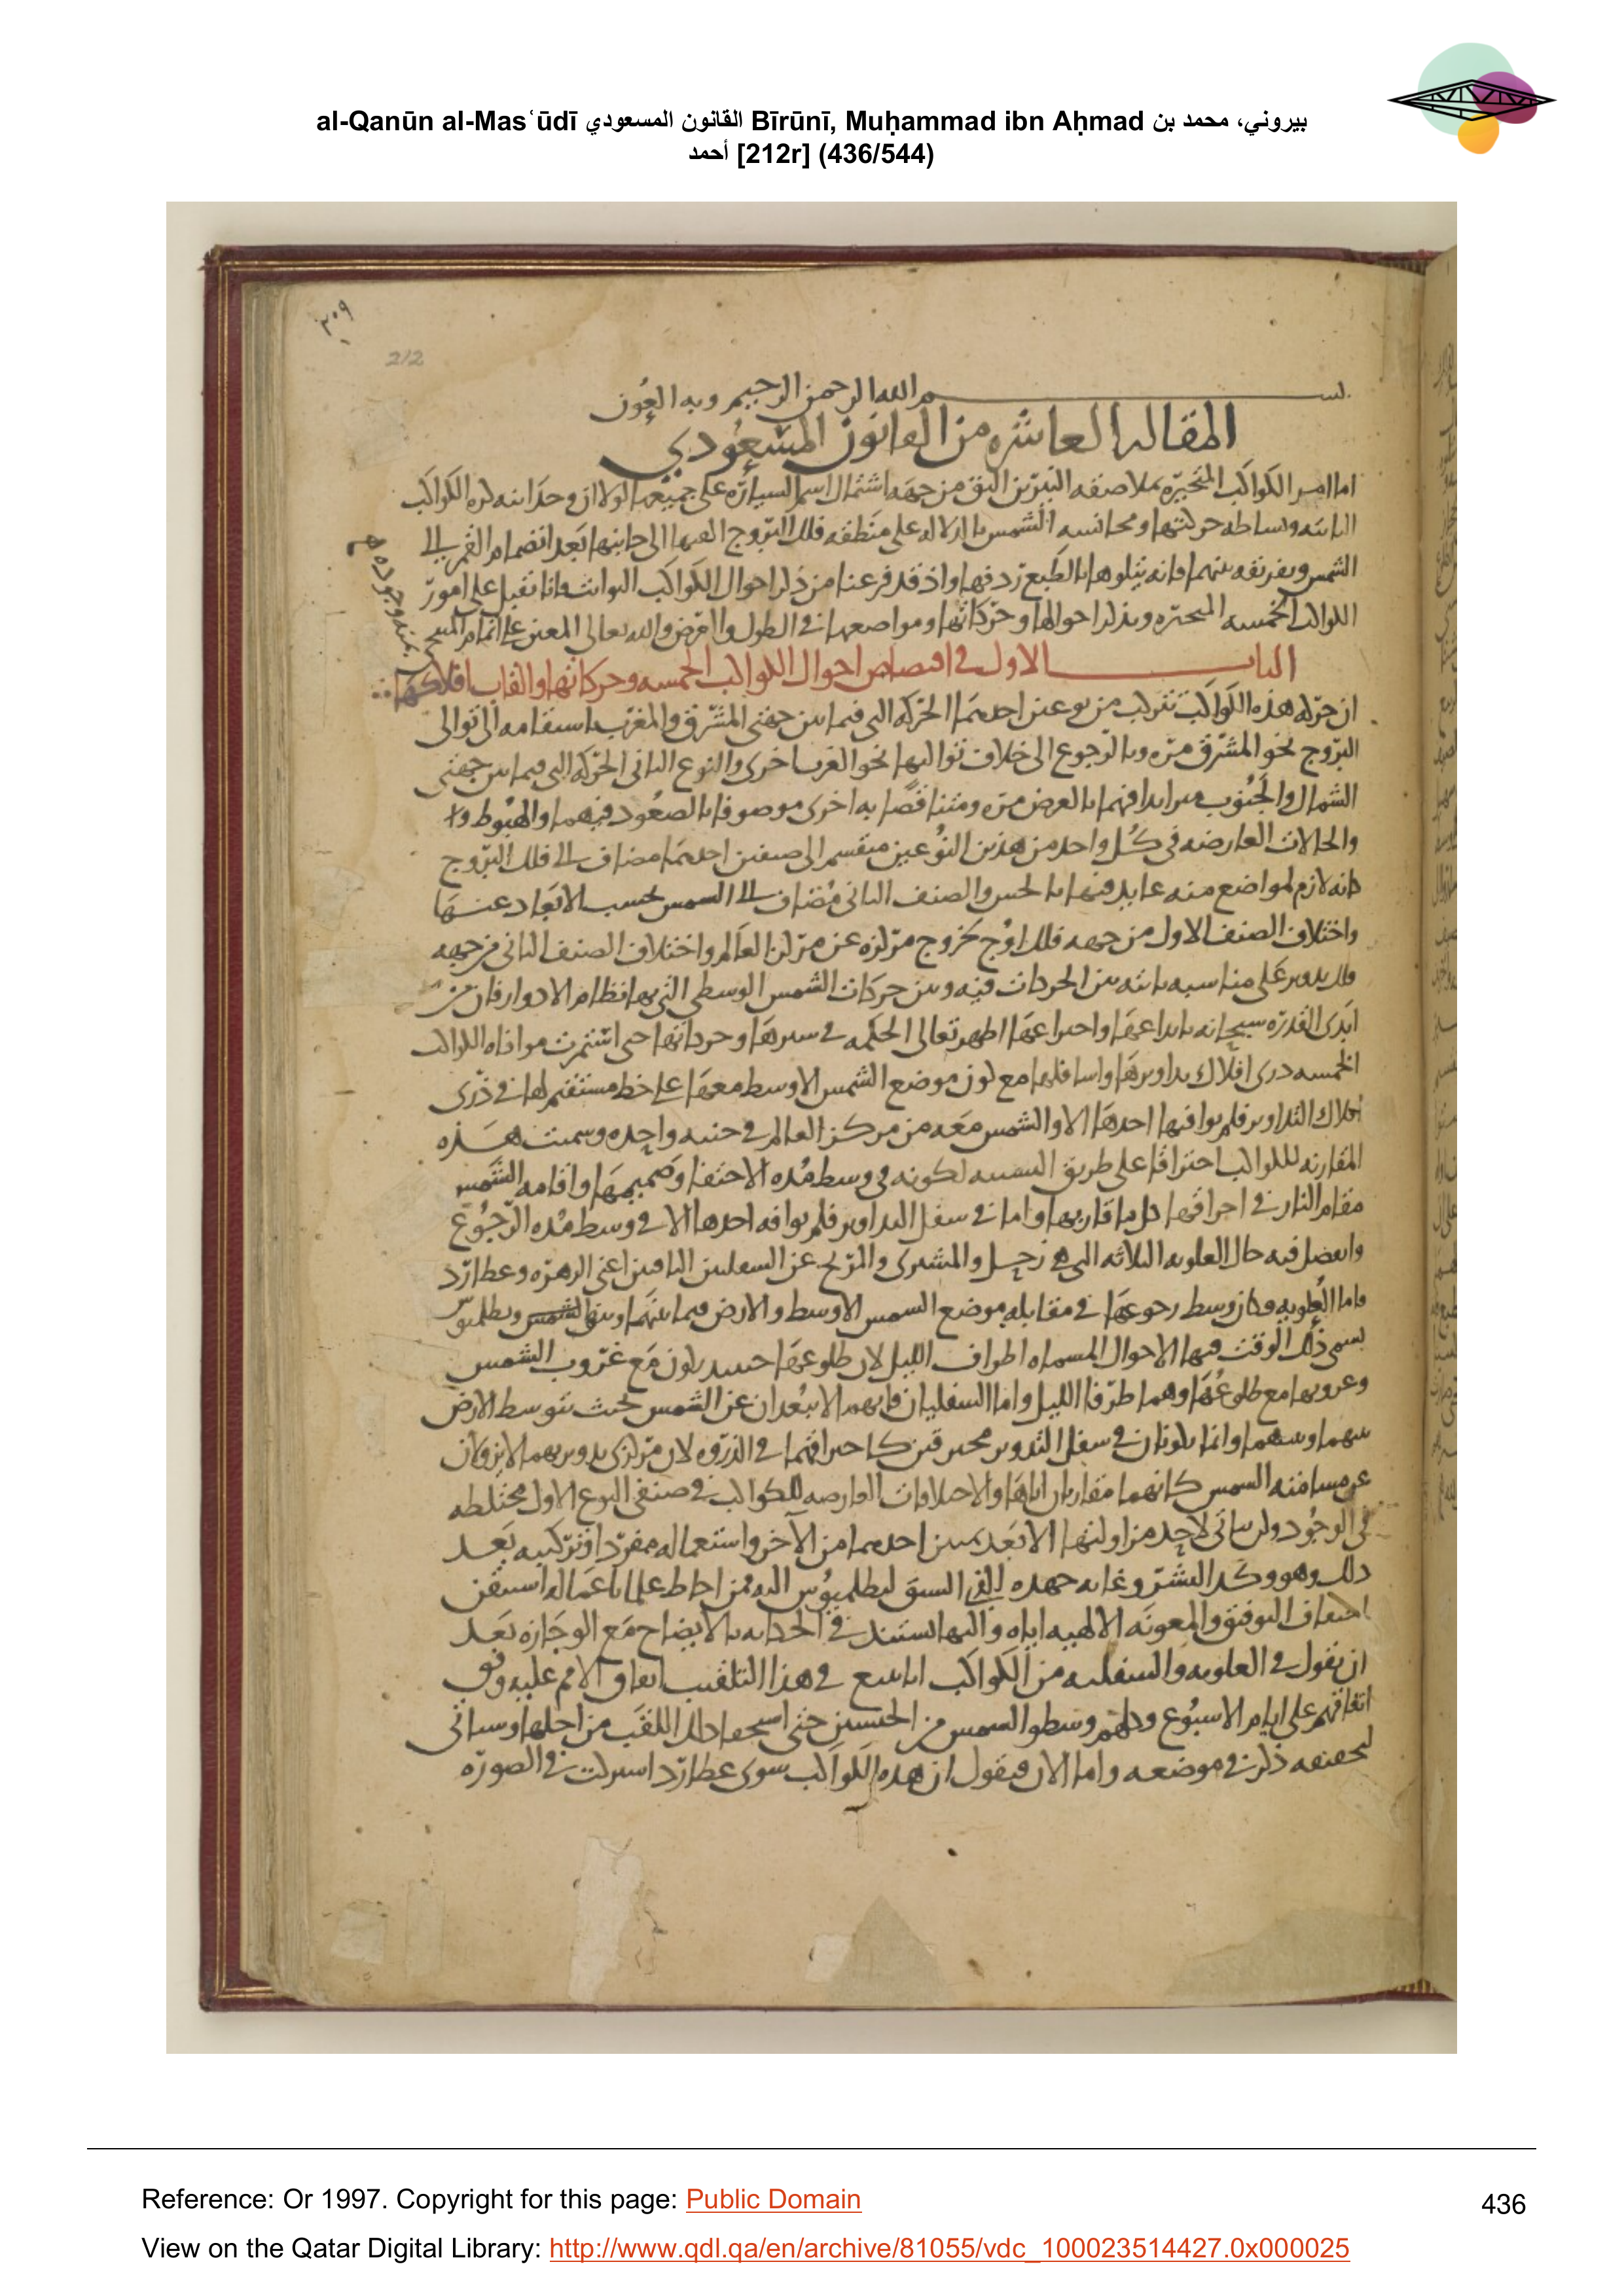 al-Qanūn al-Masʿūdī القانون المسعودي Bīrūnī, Muḥammad ibn Aḥmad بيروني، محمد بن
أحمد [212r] (436/544)
٣٠٩
212
بسم الله الرحمن الرحيم وبه العون
المقاله العاشره من القانون المسعودي
اما امر الكواكب المتحيره بملاصقه النيرين اليق من جهه اشتمال اسم السياره على جميعها لولا ان وحدانيه كره الكواكب
الثابته وبساطه حركتها ومجانسه الشمس على منطقه فلك البروج الى جانبها بعد انضمام القمر الى
الشمس وتفرقه بينهما فانه يتلوها بالطبع واذ قد فرغنا من ذكر احوال الكواكب الثوابت فانا نقبل على امور
الكواكب الخمسه المتحيره ونذكر احوالها وحركاتها ومواضعها في الطول والعرض والله تعالى المعين على اتمام
بمنه وجوده
الباب الاول في اقتصاص احوال الكواكب الخمسه وحركاتها والقاب افلاكها
ان حركه هذه الكواكب تتركب من نوعين احدهما الحركه التي فيما بين جهتي المشرق والمغرب باستقامه الى توالى
البروج نحو المشرق مره وبالرجوع الى خلاف تواليها نحو المغرب اخرى والنوع الثاني الحركه التي فيما بين جهتي
الشمال والجنوب متزايدا فيهما بالعرض مره ومتناقصا به اخرى موصوفا بالصعود فيهما والهبوط
والحالات العارضه في كل واحد من هذين النوعين منقسم الى صنفين احدهما مضاف الى فلك البروج
كانه لازم لمواضع منه عايد فيها بالحس والصنف الثاني مضاف الى الشمس بحسب الابعاد عنها
واختلاف الصنف الاول من جهه فلك اوج بخروج مركزه عن مركز العالم واختلاف الصنف الثاني من جهه
فلك تدوير على مناسبه ثابته بين الحركات فيه وبين حركات الشمس الوسطى التي بها نظام الادوار فان من
ايدى القدره سبحانه بابداعها واختراعها اظهر تعالى الحكمه في سيرها وحركاتها حتى استمرت موافاه الكواكب
الخمسه ذرى افلاك تداويرها واسافلها مع كون موضع الشمس الاوسط معها على خط مستقيم لها في ذرى
افلاك التداوير فلم يوافها احدها الا والشمس معه من مركز العالم في جنبه واحده وسميت هذه
المقارنه للكواكب احتراقا على طريق التشبيه لكونه في وسط مده الاختفا وصميمها واقامه الشمس
مقام النار في احراقها كل ما قاربها واما في سفل التداوير فلم يوافه احدها الا في وسط مده الرجوع
وانفصل فيه حال العلويه الثلاثه التي هي زحل والمشترى والمريخ عن السفليين الباقيين اعنى الزهره وعطارد
فاما العلويه فكان وسط رجوعها في مقابله موضع الشمس الاوسط والارض فيما بينها وبين الشمس وبطلميوس
يسمى ذلك الوقت فيها الاحوال المسماه اطراف الليل لان طلوعها حينئذ يكون مع غروب الشمس
وغروبها مع طلوعها وهما طرفا الليل واما السفليان فانهما لا يبعدان عن الشمس بحيث تتوسط الارض
بينهما وبينهما وانما يكونان في سفل التدوير محترقين كاحتراقهما في الذروه لان مركزى تدويريهما لا يزولان
عن مسامته الشمس كانهما مقارنان اياها والاختلافات العارضه للكواكب في صنفى النوع الاول مختلطه
في الوجود ولن يتاتى لاحد مزاولتها الا بعد تمييز احدهما من الآخر واستعماله مفردا وتركيبه بعد
ذلك وهو وكد البشر وغايه جهده السبق لبطلميوس اليه فمن احاط علما باعماله استيقن
التوفيق والمعونه الالهيه اياه واليها المستند في الحكايه بالايضاح مع الوجازه بعد
ان نقول في العلويه والسفليه من الكواكب انا نتبع في هذا التلقيب اتفاق الامم عليه وفق
اتفاقهم على ايام الاسبوع وكلهم وسطوا الشمس من الخمسه حتى استحقا ذلك اللقب من اجلها وسياتى
لتحقيقه ذكر في موضعه واما الان فنقول ان هذه الكواكب سوى عطارد اشتركت في الصوره
Reference: Or 1997. Copyright for this page: Public Domain
436
View on the Qatar Digital Library: http://www.qdl.qa/en/archive/81055/vdc_100023514427.0x000025